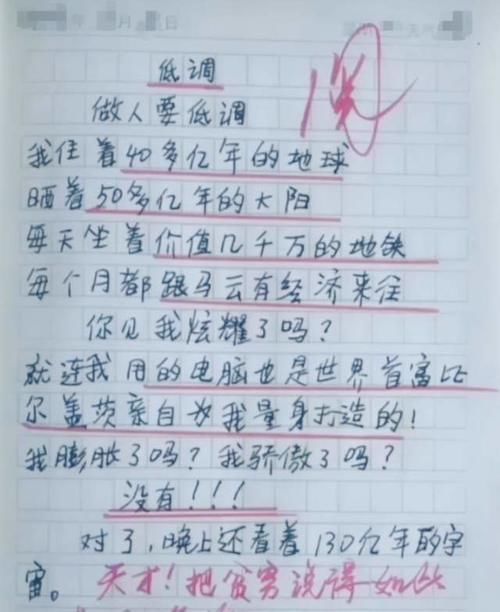 低调
做人要低调
我住着40多亿年的地球
晒着50多亿年的太阳
每天坐着价值几千万的地铁
每个月都跟马云有经济来往
你见我炫耀了吗？
就连我用的电脑也是世界首富比
尔盖茨亲自为我量身打造的！
我膨胀了吗？我骄傲了吗？
没有！！！
对了，晚上还看着130亿年的宇
宙。天才！把贫穷说得如此